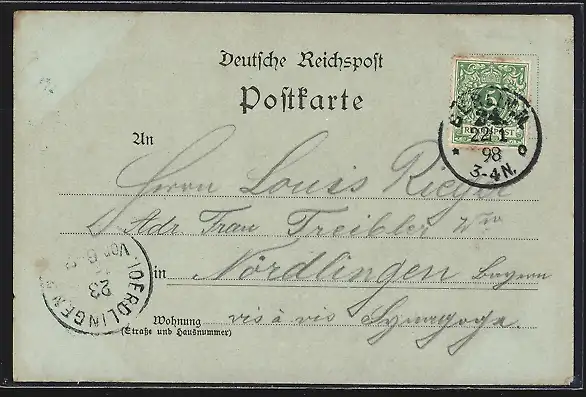 Deutsche Reichspost
Postkarte
An
Herrn Louis Rieger
Adr. Frau Treibler Ww
in Nördlingen Bayern
Wohnung vis à vis Synagoge.
(Straße und Hausnummer)
5
REICHSPOST
22 1
98
3-4N.
NOERDLINGEN
23